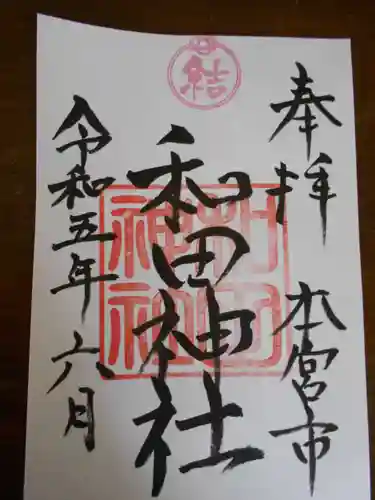 奉拝 本宮市
結
和田神社
和田神社
令和五年六月